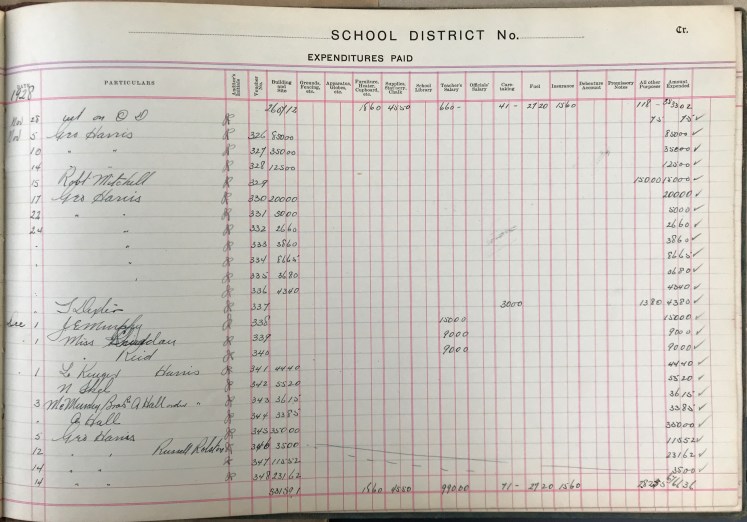 SCHOOL DISTRICT No. Cr.
EXPENDITURES PAID
DATE PARTICULARS Auditor's Initials Voucher No. Building and Site Grounds, Fencing, etc. Apparatus, Globes, etc. Furniture, Heater, Cupboard, etc. Supplies, Stat'nery, Chalk School Library Teacher's Salary Officials' Salary Care-taking Fuel Insurance Debenture Account Promissory Notes All other Purposes Amount Expended
1928 1560 4550 660- 41- 2920 1560 118-
Nov 28 on O D 75 75 ✓
Nov 5 Geo Harris 326 85000 85000 ✓
10 " " 327 35000 35000 ✓
14 " " 328 12500 12500 ✓
15 Robt Mitchell 329 15000 15000 ✓
17 Geo Harris 330 20000 20000 ✓
22 " " 331 5000 5000 ✓
24 " 332 2660 2660 ✓
" 333 3860 3860 ✓
" 334 8665 8665 ✓
" 335 3680 3680 ✓
336 4340 4340 ✓
" 337 3000 1380 4380 ✓
Dec 1 J E Murphy 338 15000 15000 ✓
" 1 Miss 339 9000 9000 ✓
" Reid 340 9000 9000 ✓
" 1 Harris 341 4440 4440 ✓
N 342 5520 5520 ✓
3 McMurdy Bros A Hall " 343 3615 3615 ✓
A Hall 344 3385 3385 ✓
5 Geo Harris 345 35000 35000 ✓
12 " " Russell Rolston 346 3500 11552 ✓
14 " " 347 11552 23162 ✓
14 348 23162 3500 ✓
1560 4550 99000 71- 2920 1560